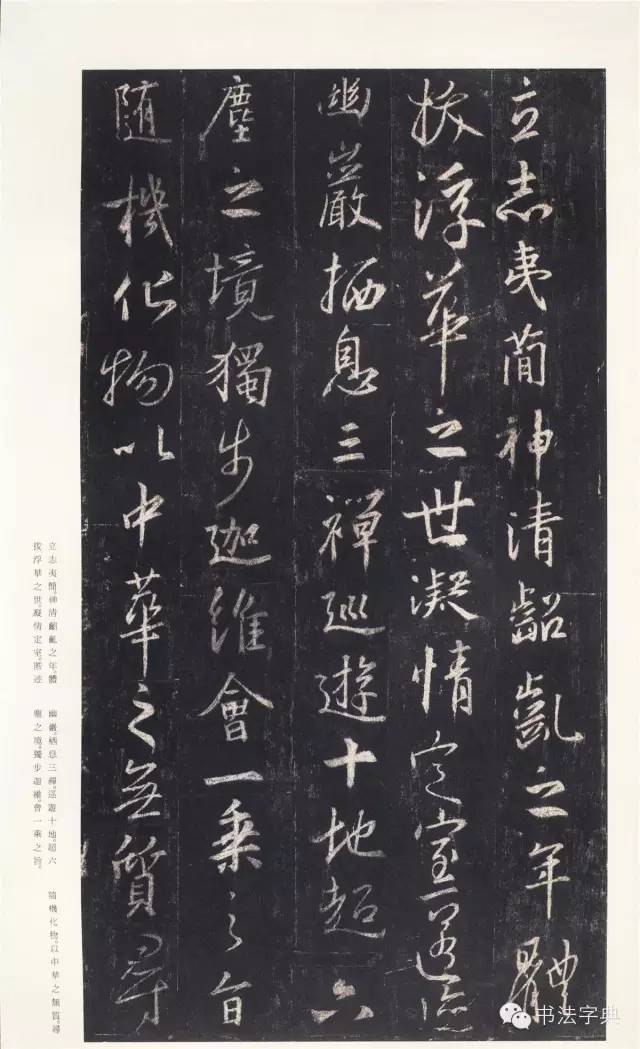 立志夷簡神清齠齔之年體
拔浮華之世凝情定室匿迹
幽巖栖息三禪巡遊十地超六
塵之境獨步迦維會一乘之旨
隨機化物以中華之無質尋
立志夷簡。神清齠齔之年。體
拔浮華之世。凝情定室。匿迹
幽巖。栖息三禪。巡遊十地。超六
塵之境。獨步迦維。會一乘之旨。
隨機化物。以中華之無質。尋
书法字典